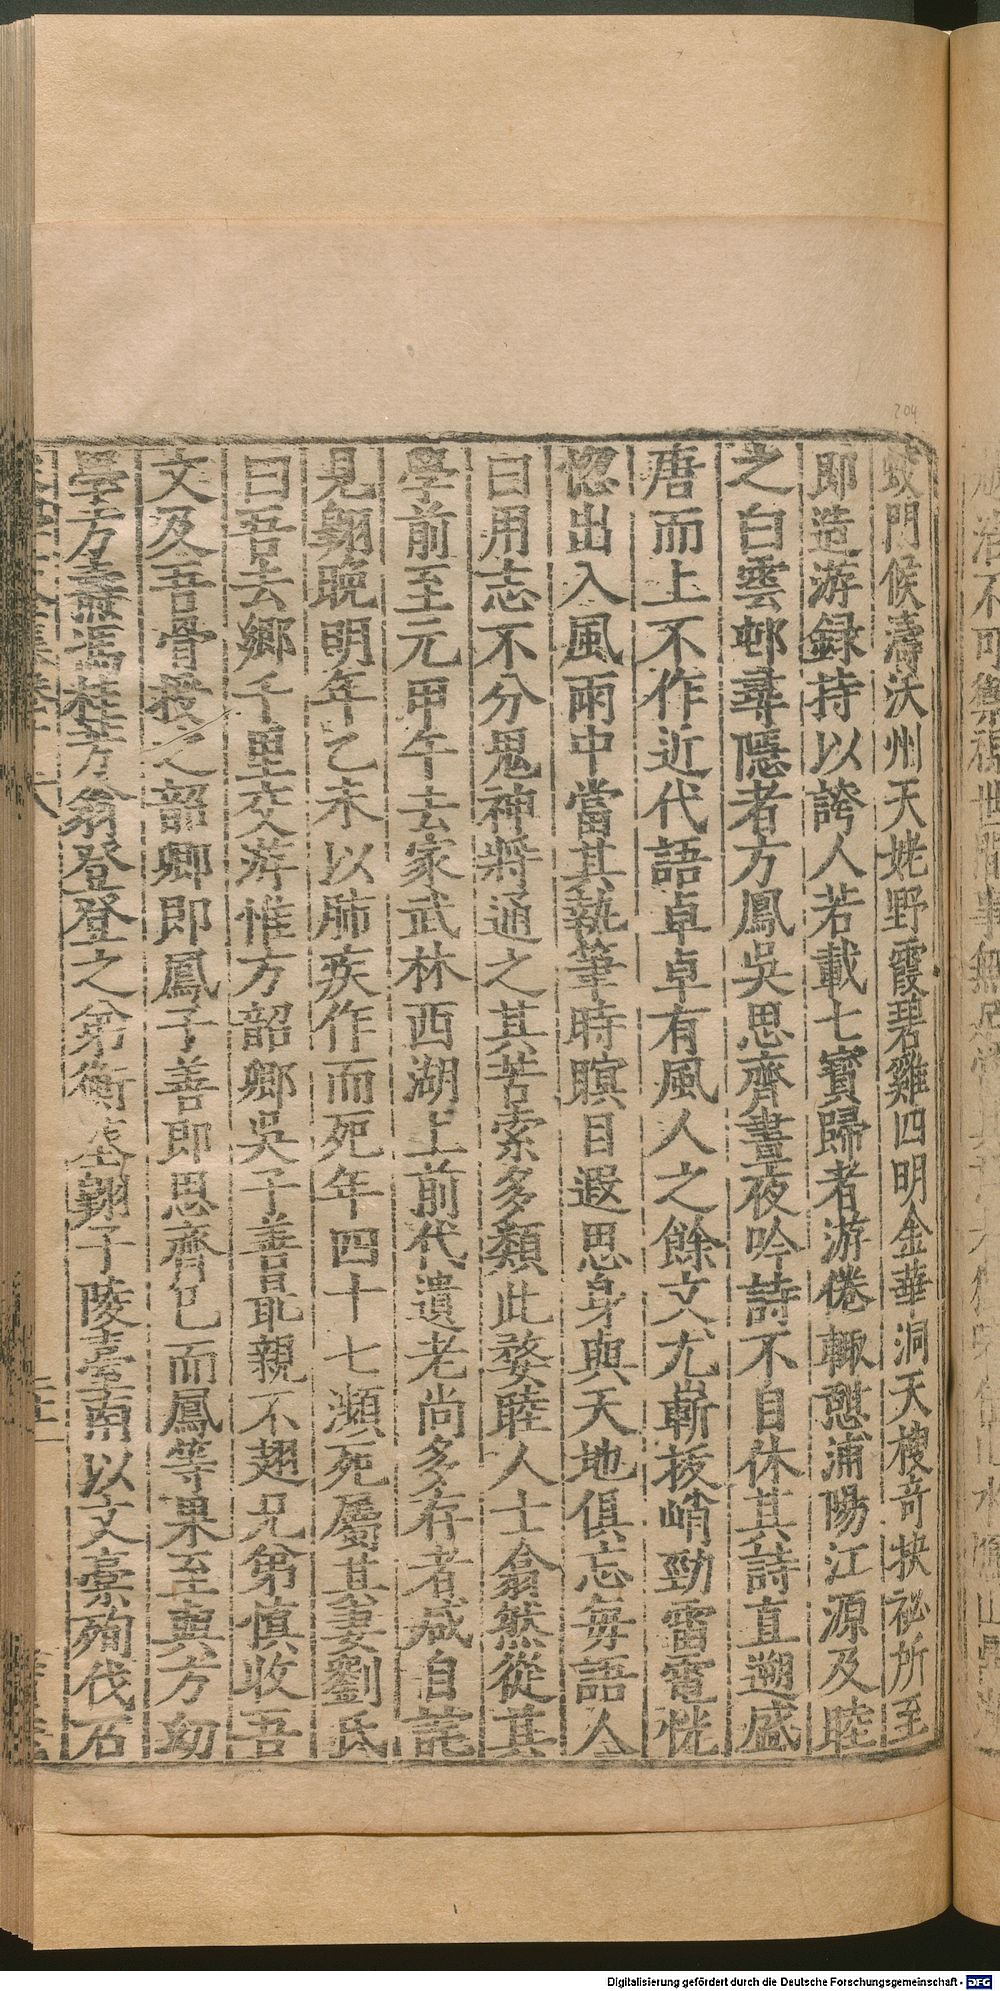 蛟門候濤沃州天姥野霞碧雞四明金華洞天梭竒抉祕所至
即造游録持以誇人若載七寳歸者游倦輙憇浦陽江源及睦
之白雲邨尋隱者方鳳吳思齊晝夜吟詩不自休其詩直遡盛
唐而上不作近代語卓卓有風人之餘文尤嶄拔峭勁雷電恍
惚出入風雨中當其執筆時瞑目遐思身與天地俱忘每語人
曰用志不分鬼神將通之其苦索多類此婺睦人士翕然從其
學前至元甲午去家武林西湖上前代遺老尚多存者咸自詫
見翺晚明年乙未以肺疾作而死年四十七瀕死屬其妻劉氏
曰吾去鄉千里交游惟方韶卿吳子善最親不翅兄弟慎收吾
文及吾骨授之韶卿即鳳子善即思齊已而鳳等果至與方幼
學方燾馮桂芳翁登登之弟衡塟翺子陵臺南以文槀殉伐石
Digitalisierung gefördert durch die Deutsche Forschungsgemeinschaft - DFG